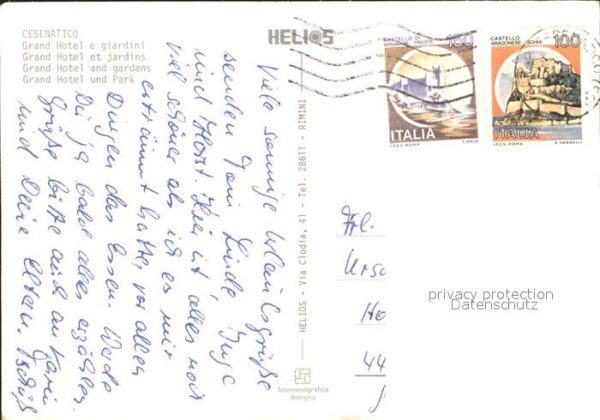 CESENATICO
Grand Hotel e giardini
Grand Hotel et jardins
Grand Hotel and gardens
Grand Hotel und Park
HELIOS
CASTELLO DI
MIRAMARE TRIESTE
150
ITALIA
I.P.Z.S.-ROMA
E. MELE
CASTELLO
ARAGONESE - ISCHIA
100
ITALIA
I.P.Z.S.-ROMA
E. VANGELLI
Viele sonnige Urlaubsgrüße
senden Dir Linde, Inge
und Horst. Hier ist alles noch
viel schöner als ich es mir
erträumt hatte, vor allen
Dingen das Essen. Werde
Dir ja bald alles erzählen.
Grüße bitte auch
und Deine Eltern.
HELIOS - Via Clodia, 41 - Tel. 28611 - RIMINI
Frl.
Urs
He
44
fotometalgrafica
bologna
privacy protection
Datenschutz